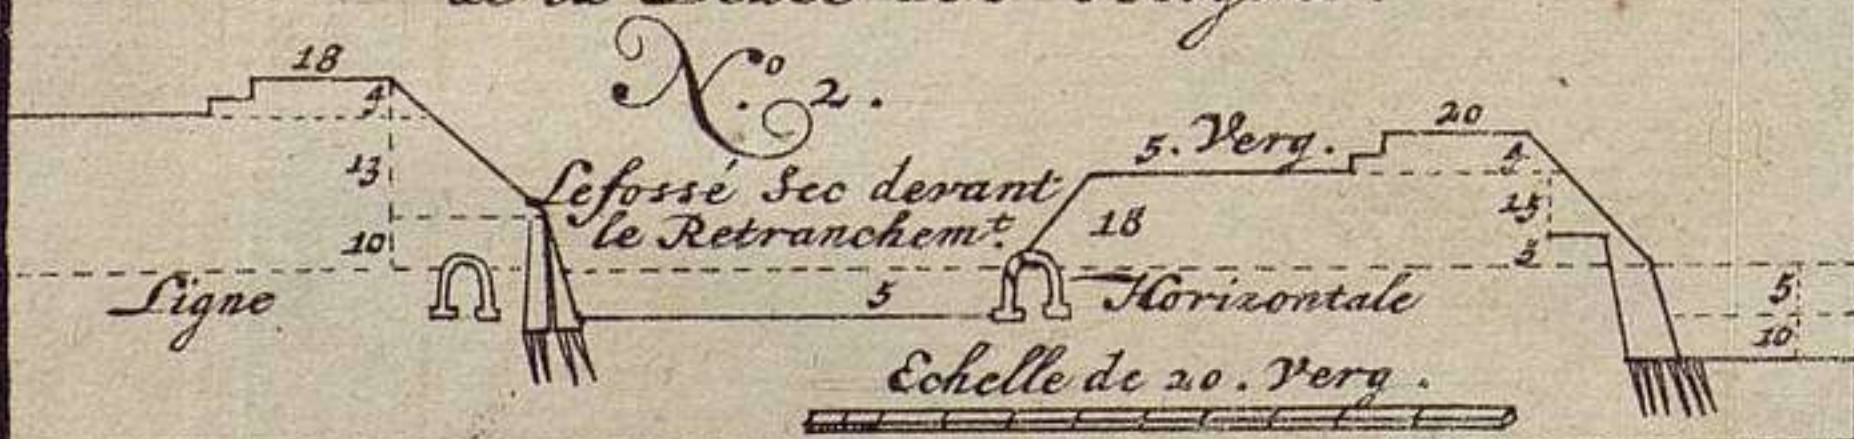 N.º 2.
18
4
13
10
Le fossé Sec devant
le Retranchem.t
5. Verg.
20
4
15
5
18
Ligne
5
Horizontale
5
10
Echelle de 20. Verg.